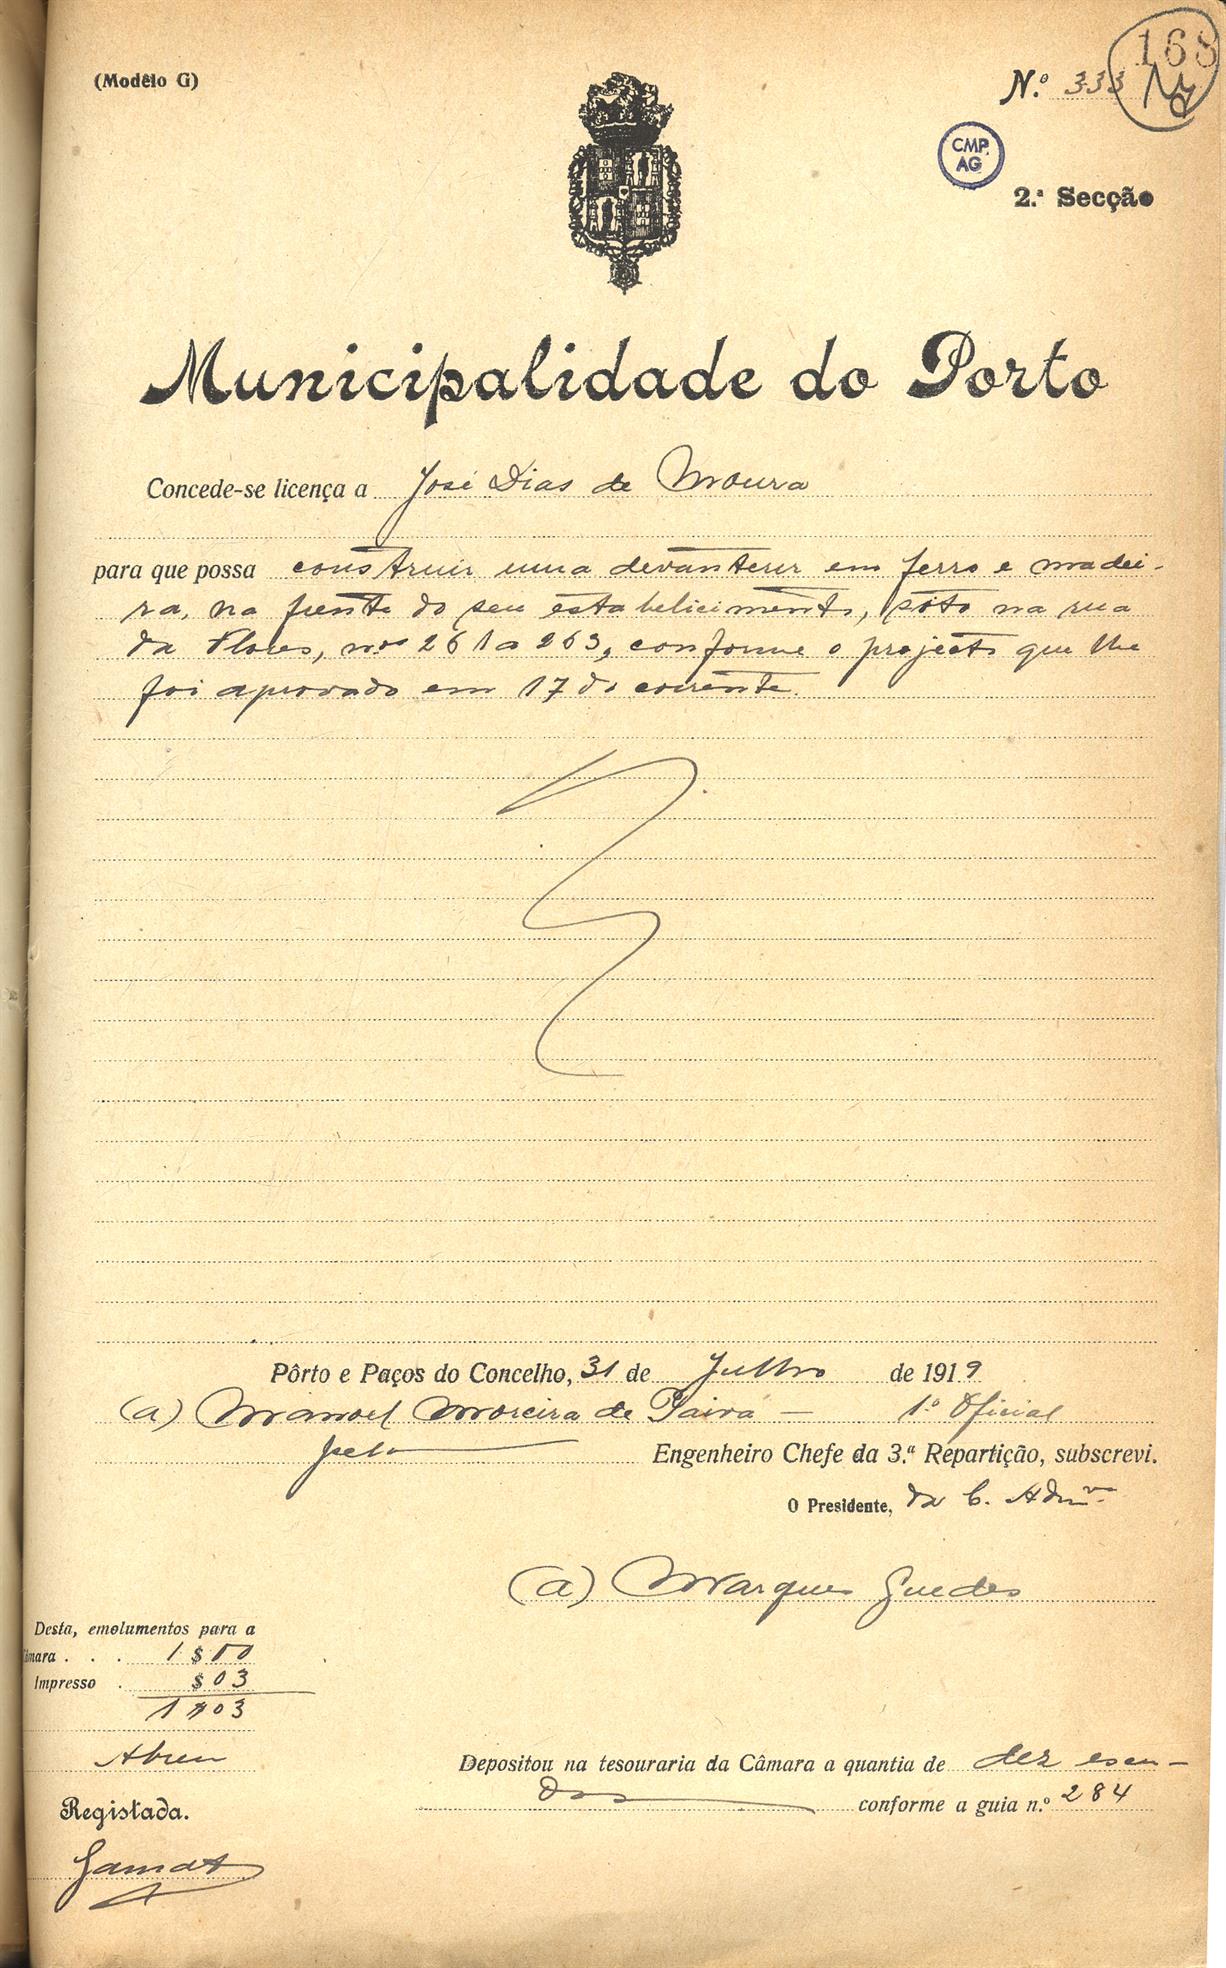 (Modêlo G)
168
N.º 333
CMP.
AG
2.ª Secção
Municipalidade do Porto
Concede-se licença a José Dias de Moura
para que possa construir uma devanterer em ferro e madei-
ra, na frente do seu estabelicimento, sito na rua
da Flores, nos 261 a 263, conforme o projecto que lhe
foi aprovado em 17 do corrente.
Pôrto e Paços do Concelho, 31 de Julho de 1919
(a) Manoel Moreira de Paiva — 1.º Oficial
pelo Engenheiro Chefe da 3.ª Repartição, subscrevi.
O Presidente, da C. Admva.
(a) Marques Guedes
Desta, emolumentos para a
Câmara . . . 1$00
Impresso . $03
1$03
Abreu
Depositou na tesouraria da Câmara a quantia de dez escu-
dos conforme a guia n.º 284
Registada.